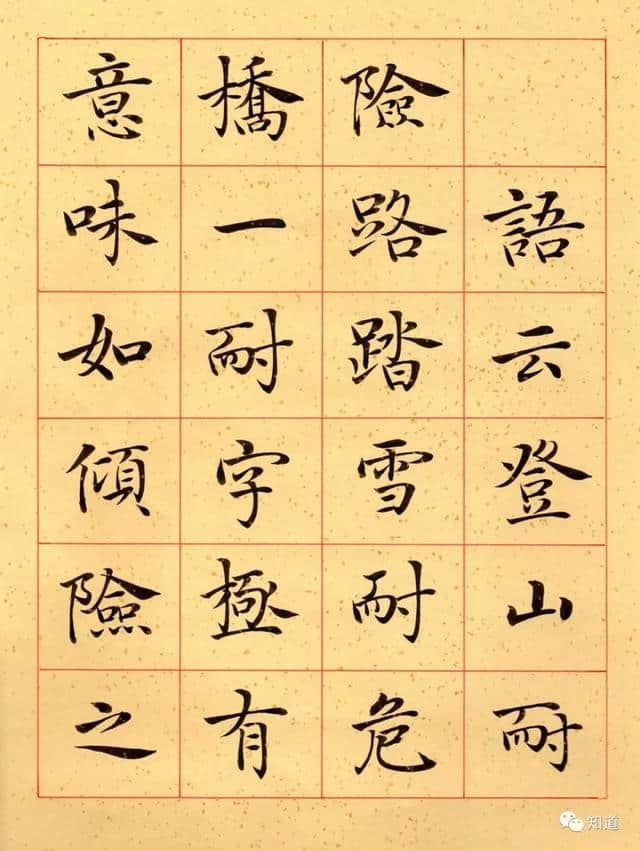 語云登山耐
險路踏雪耐危
橋一耐字極有
意味如傾險之
知道